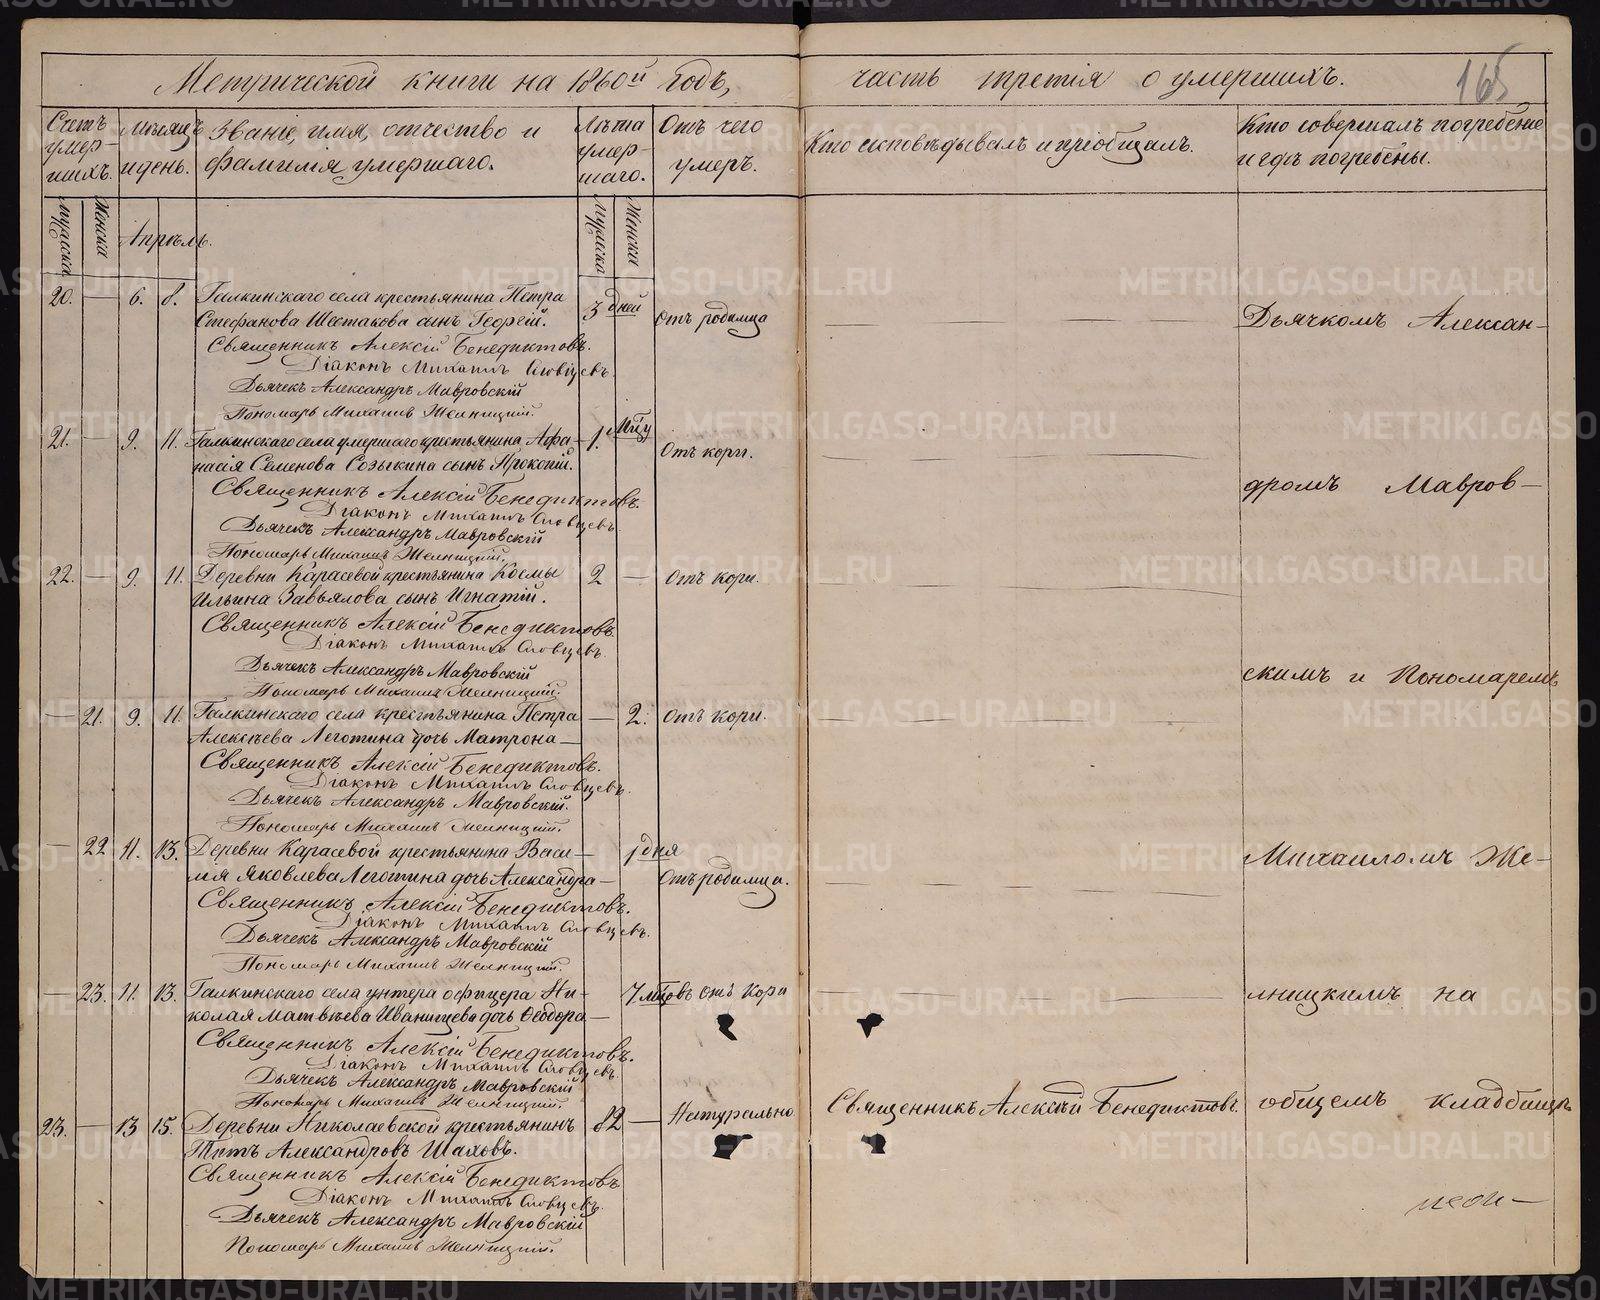 Метрической книги на 1860й годъ, часть третія о умершихъ. 165
Счетъ умер-шихъ. Мѣсяцъ и день. Званіе, имя, отчество и фамилія умершаго. Лѣта умер-шаго. Отъ чего умеръ. Кто исповѣдывалъ и пріобщалъ. Кто совершалъ погребеніе и гдѣ погребены.
Мужеска Женска Апрѣль. Мужеска Женска
20. — 6. 8. Галкинскаго села крестьянина Петра 3 дней
Стефанова Шестакова сынъ Георгій. Отъ родимца Дьячкомъ Алексан-
Священникъ Алексій Бенедиктовъ.
Діаконъ Михаилъ Словцевъ.
Дьячекъ Александръ Мавровскій
Пономарь Михаилъ Желницкій.
21. — 9. 11. Галкинскаго села умершаго крестьянина Афа- 1. Мцу
насія Семенова Созыкина сынъ Прокопій. Отъ кори.
Священникъ Алексій Бенедиктовъ. дромъ Мавров-
Діаконъ Михаилъ Словцевъ
Дьячекъ Александръ Мавровскій
Пономарь Михаилъ Желницкій.
22. — 9. 11. Деревни Карасевой крестьянина Космы 2 — Отъ кори.
Ильина Завьялова сынъ Игнатій.
Священникъ Алексій Бенедиктовъ.
Діаконъ Михаилъ Словцевъ.
Дьячекъ Александръ Мавровскій скимъ и Пономаремъ
Пономарь Михаилъ Желницкій.
— 21. 9. 11. Галкинскаго села крестьянина Петра — 2. Отъ кори.
Алексѣева Леготина дочь Матрона —
Священникъ Алексій Бенедиктовъ.
Діаконъ Михаилъ Словцевъ.
Дьячекъ Александръ Мавровскій.
Пономарь Михаилъ Желницкій.
— 22 11. 13. Деревни Карасевой крестьянина Васи- 1 дня Михаиломъ Же-
лія Яковлева Леготина дочь Александра — Отъ родимца.
Священникъ Алексій Бенедиктовъ.
Діаконъ Михаилъ Словцевъ.
Дьячекъ Александръ Мавровскій
Пономарь Михаилъ Желницкій.
— 23. 11. 13. Галкинскаго села унтера офицера Ни- 7 мцовъ отъ кори лницкимъ на
колая Матвѣева Иванищева дочь Ѳеодора —
Священникъ Алексій Бенедиктовъ.
Діаконъ Михаилъ Словцевъ.
Дьячекъ Александръ Мавровскій
Пономарь Михаилъ Желницкій.
23. — 13 15. Деревни Николаевской крестьянинъ 82 — Натурально Священникъ Алексій Бенедиктовъ. общемъ кладбищѣ
Титъ Александровъ Шаховъ.
Священникъ Алексій Бенедиктовъ
Діаконъ Михаилъ Словцевъ.
Дьячекъ Александръ Мавровскій
Пономарь Михаилъ Желницкій.
METRIKI.GASO-URAL.RU